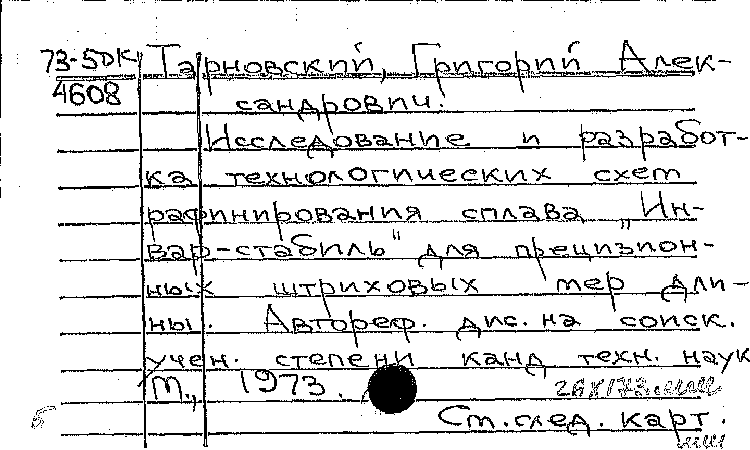 73-5DK Тарновский, Григорий Алек-
4608 сандрович.
Исследование и разработ-
ка технологических схем
рафинирования сплава „Ин-
вар-стабиль“ для прецизион-
ных штриховых мер дли-
ны. Автореф. дис. на соиск.
учен. степени канд техн. наук
М., 1973.
См. след. карт.